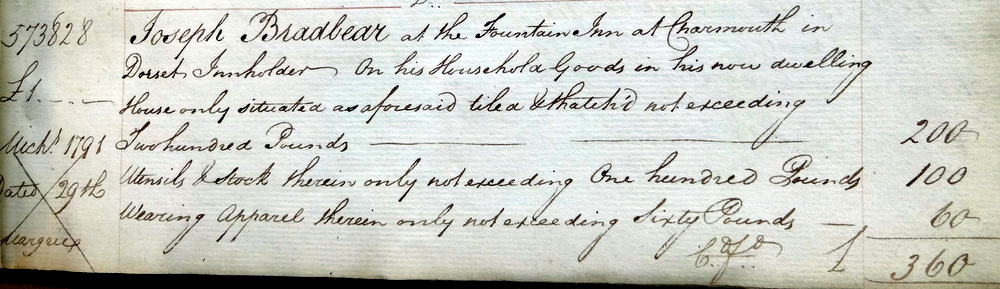 573828 Joseph Bradbear at the Fountain Inn at Charmouth in
Dorset Innholder On his Household Goods in his now dwelling
£1.-.- House only situated as aforesaid tiled & thatch'd not exceeding
Michs. 1791 Two hundred Pounds 200
Dated 29th Utensils & stock therein only not exceeding One hundred Pounds 100
Wearing Apparel therein only not exceeding Sixty Pounds 60
£ 360